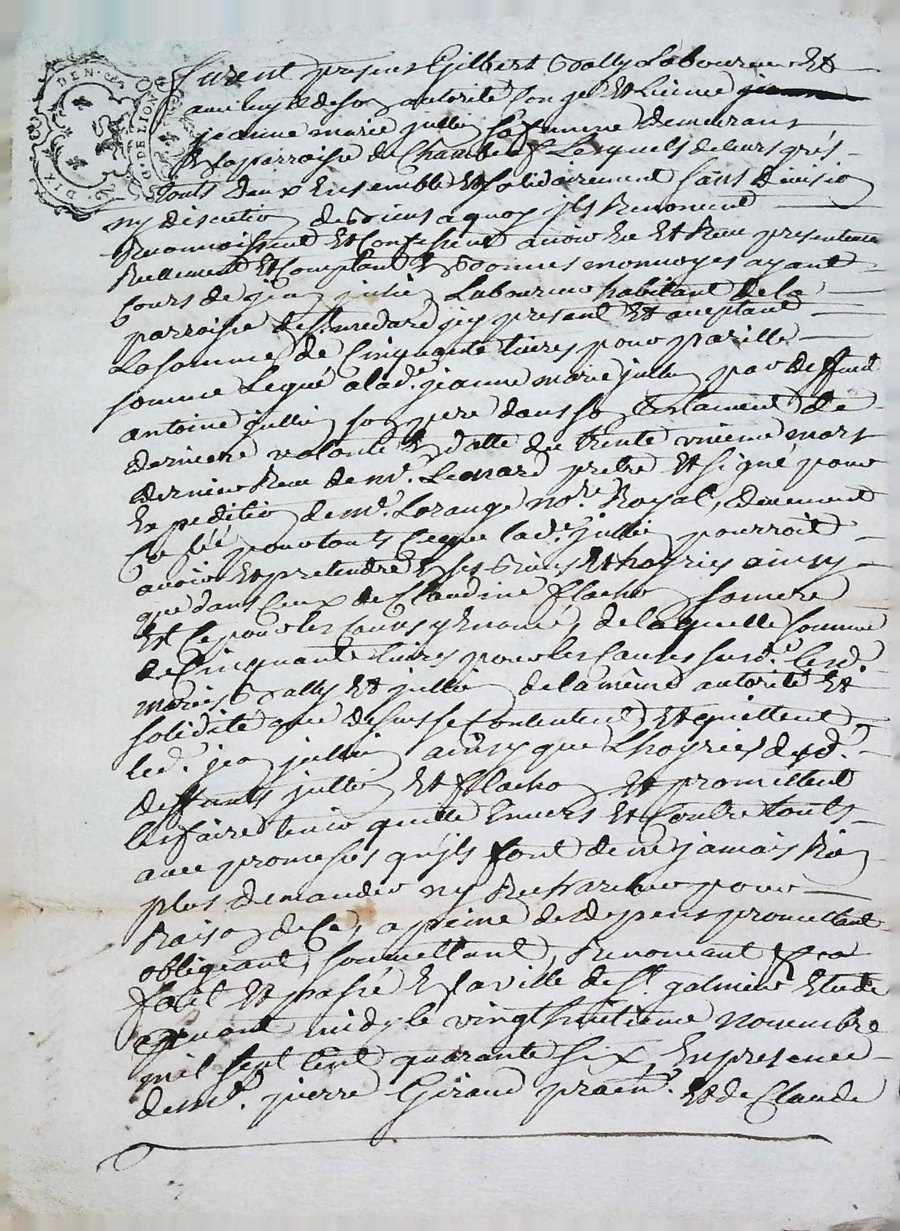 DIX DEN. GEN. DE LION
furent presens Gilbert Vally Laboureur Et
de son autorité Et
jeanne marie jullin sa femme demeurant
En la parroisse de Chambeuf Lesquels de leurs grés
touts deux Ensemble Et solidairement sans division
ny discution de biens a quoy ils Renoncent
Reconnoissent Et Confessent avoir Eu Et Receu presentement
Reellement Et Comptant En bonnes monnoyes ayant
Cours de jean jullien Laboureur habitant de la
parroisse de St. medard jcy present Et aceptant
La somme de Cinquante livres pour pareille
somme Legué a lad.e jeanne marie jullin par deffunt
antoine jullin son pere dans son testament de
derniere volonté En datte du trente unieme mars
dernier Receu de mr. pretre Et signé pour
Expedition de me. Lorange nore. Royal, duement
pour touts Ce que lad.e jullin pourroit
avoir Et pretendre Es biens Et hoyries ainsy
que dans Ceux de Claudine flachon sa mere
Et Ce pour les Causes y Enoncé, de laquelle somme
de Cinquante livres pour les Causes susd.es Lesd.
mariés Vally Et jullin de la même autorité Et
solidité que dessus se Contentent Et quittent
led. jean jullien ainsy que L'hoyries desd.
deffunts jullin Et flachon Et promettent
les faire tenir quitte Envers Et Contre touts
avec promesses qu'jls font de ne jamais Rien
plus demander ny Rechercher pour
Raison de Ce, a peine de depens promettant
obligeant, soumettant, Renoncant
fait Et passé En la ville de St. galmier Etude
avant midy le vingt huitieme novembre
mil sept Cent quarante six, En presence
de me. pierre Giraud Et de Claude